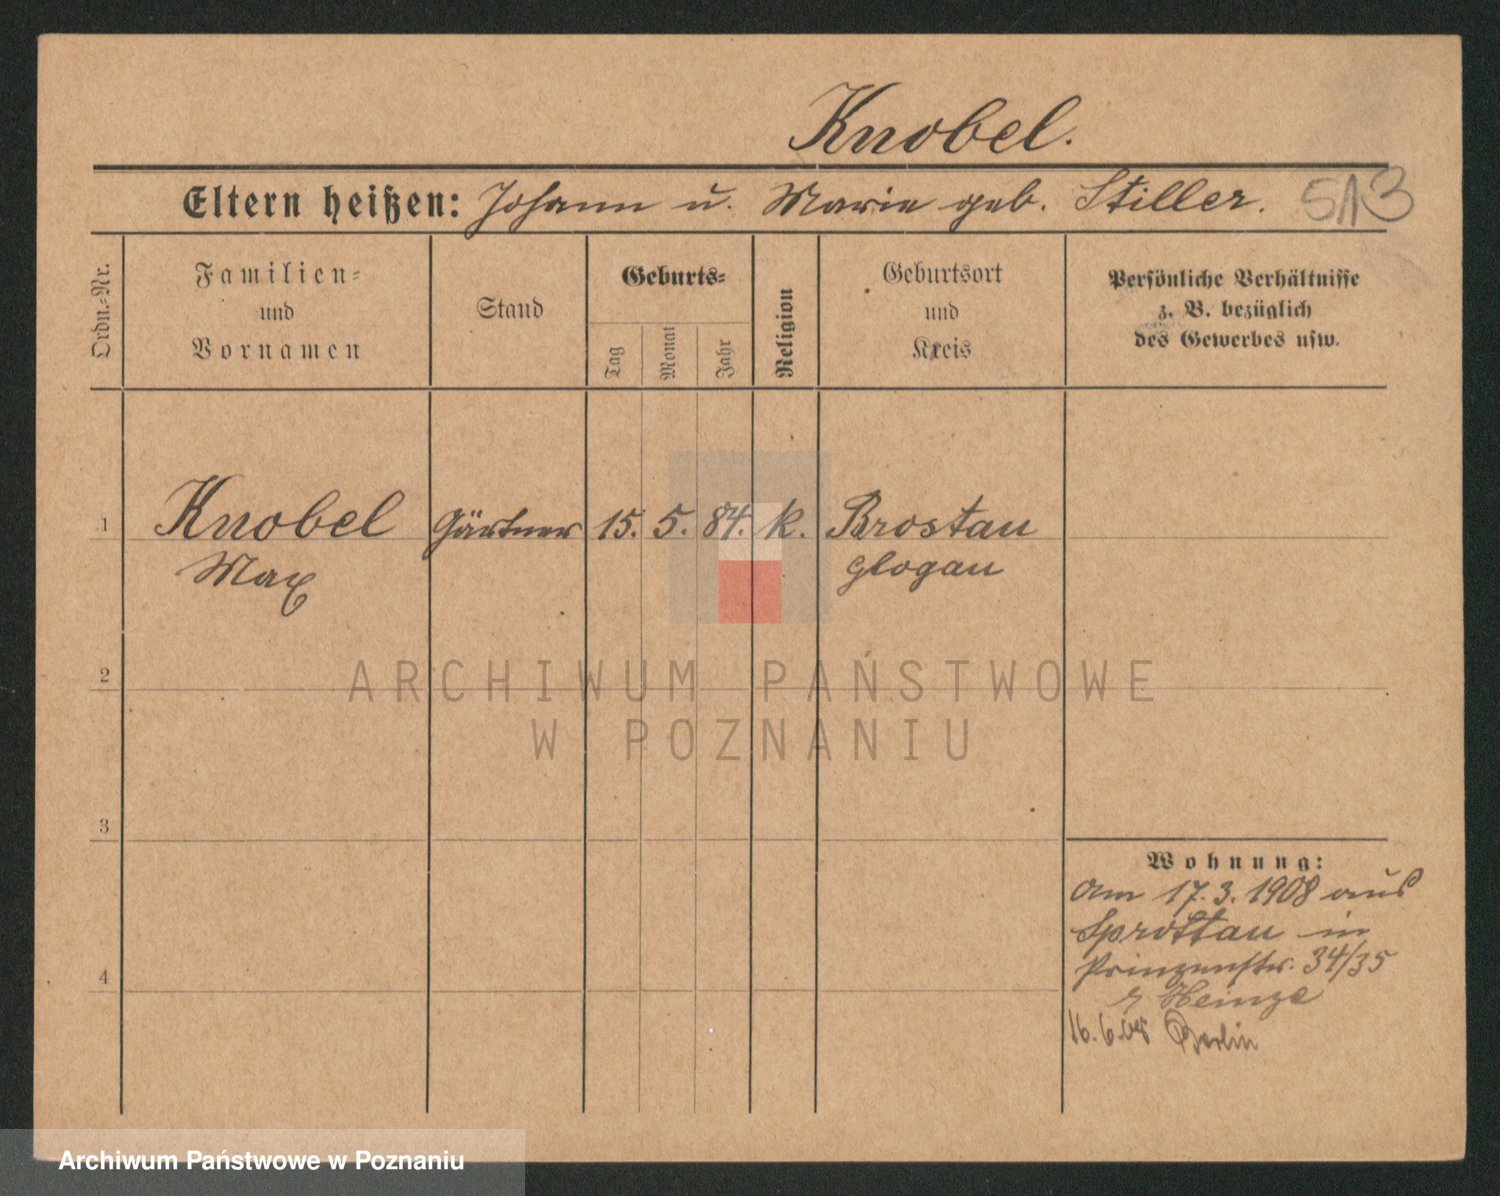 Knobel.
Eltern heißen: Johann u. Marie geb. Stiller. 513
Ordn.-Nr.
Familien-
und
Vornamen
Stand
Geburts-
Tag
Monat
Jahr
Religion
Geburtsort
und
Kreis
Persönliche Verhältnisse
z. B. bezüglich
des Gewerbes usw.
1 Knobel Gärtner 15. 5. 84. k. Brostau
Max Glogau
2
3
4
Wohnung:
Am 17.3.1908 aus
Sprottau in
Prinzenstr. 34/35
Heinze
16.6.08 Berlin
ARCHIWUM PAŃSTWOWE
W POZNANIU
Archiwum Państwowe w Poznaniu